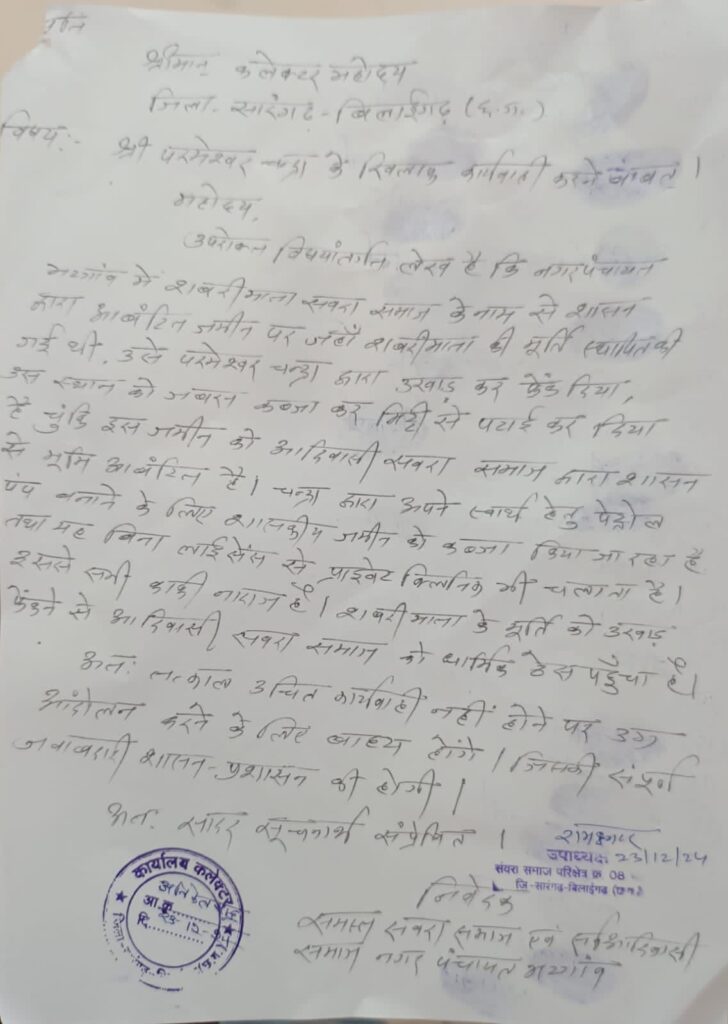 प्रति
श्रीमान् कलेक्टर महोदय
जिला- सारंगढ़ - बिलाईगढ़ (छ.ग.)
विषय:-
श्री परमेश्वर चन्द्रा के खिलाफ कार्यवाही करने बाबत ।
महोदय,
उपरोक्त विषयांतर्गत लेख है कि नगर पंचायत
भटगांव में शबरीमाता सवरा समाज के नाम से शासन
द्वारा आबंटित जमीन पर जहाँ शबरीमाता की मूर्ति स्थापित की
गई थी, उसे परमेश्वर चन्द्रा द्वारा उखाड़ कर फेंक दिया,
उस स्थान को जबरन कब्जा कर मिट्टी से पटाई कर दिया
है चुंकि इस जमीन को आदिवासी सवरा समाज द्वारा शासन
से भूमि आबंटित है। चन्द्रा द्वारा अपने स्वार्थ हेतु पेट्रोल
पंप बनाने के लिए शासकीय जमीन को कब्जा किया जा रहा है
तथा यह बिना लाईसेंस से प्राइवेट क्लिनिक भी चलाता है।
इससे सभी काफी नाराज हैं। शबरीमाता के मूर्ति को उखाड़
फेंकने से आदिवासी सवरा समाज को धार्मिक ठेस पहुँचा है।
अतः तत्काल उचित कार्यवाही नहीं होने पर उग्र
आंदोलन करने के लिए बाध्य होंगे। जिसकी संपूर्ण
जवाबदारी शासन-प्रशासन की होगी।
अतः सादर सूचनार्थ संप्रेषित ।
उपाध्यक्ष 23/12/24
संवरा समाज परिक्षेत्र क्र 08
जि-सारंगढ-बिलाईगढ (छ.ग.)
कार्यालय कलेक्टर
आ.क्र.
दि.
निवेदक
समस्त सवरा समाज एवं सर्व आदिवासी
समाज नगर पंचायत भटगांव